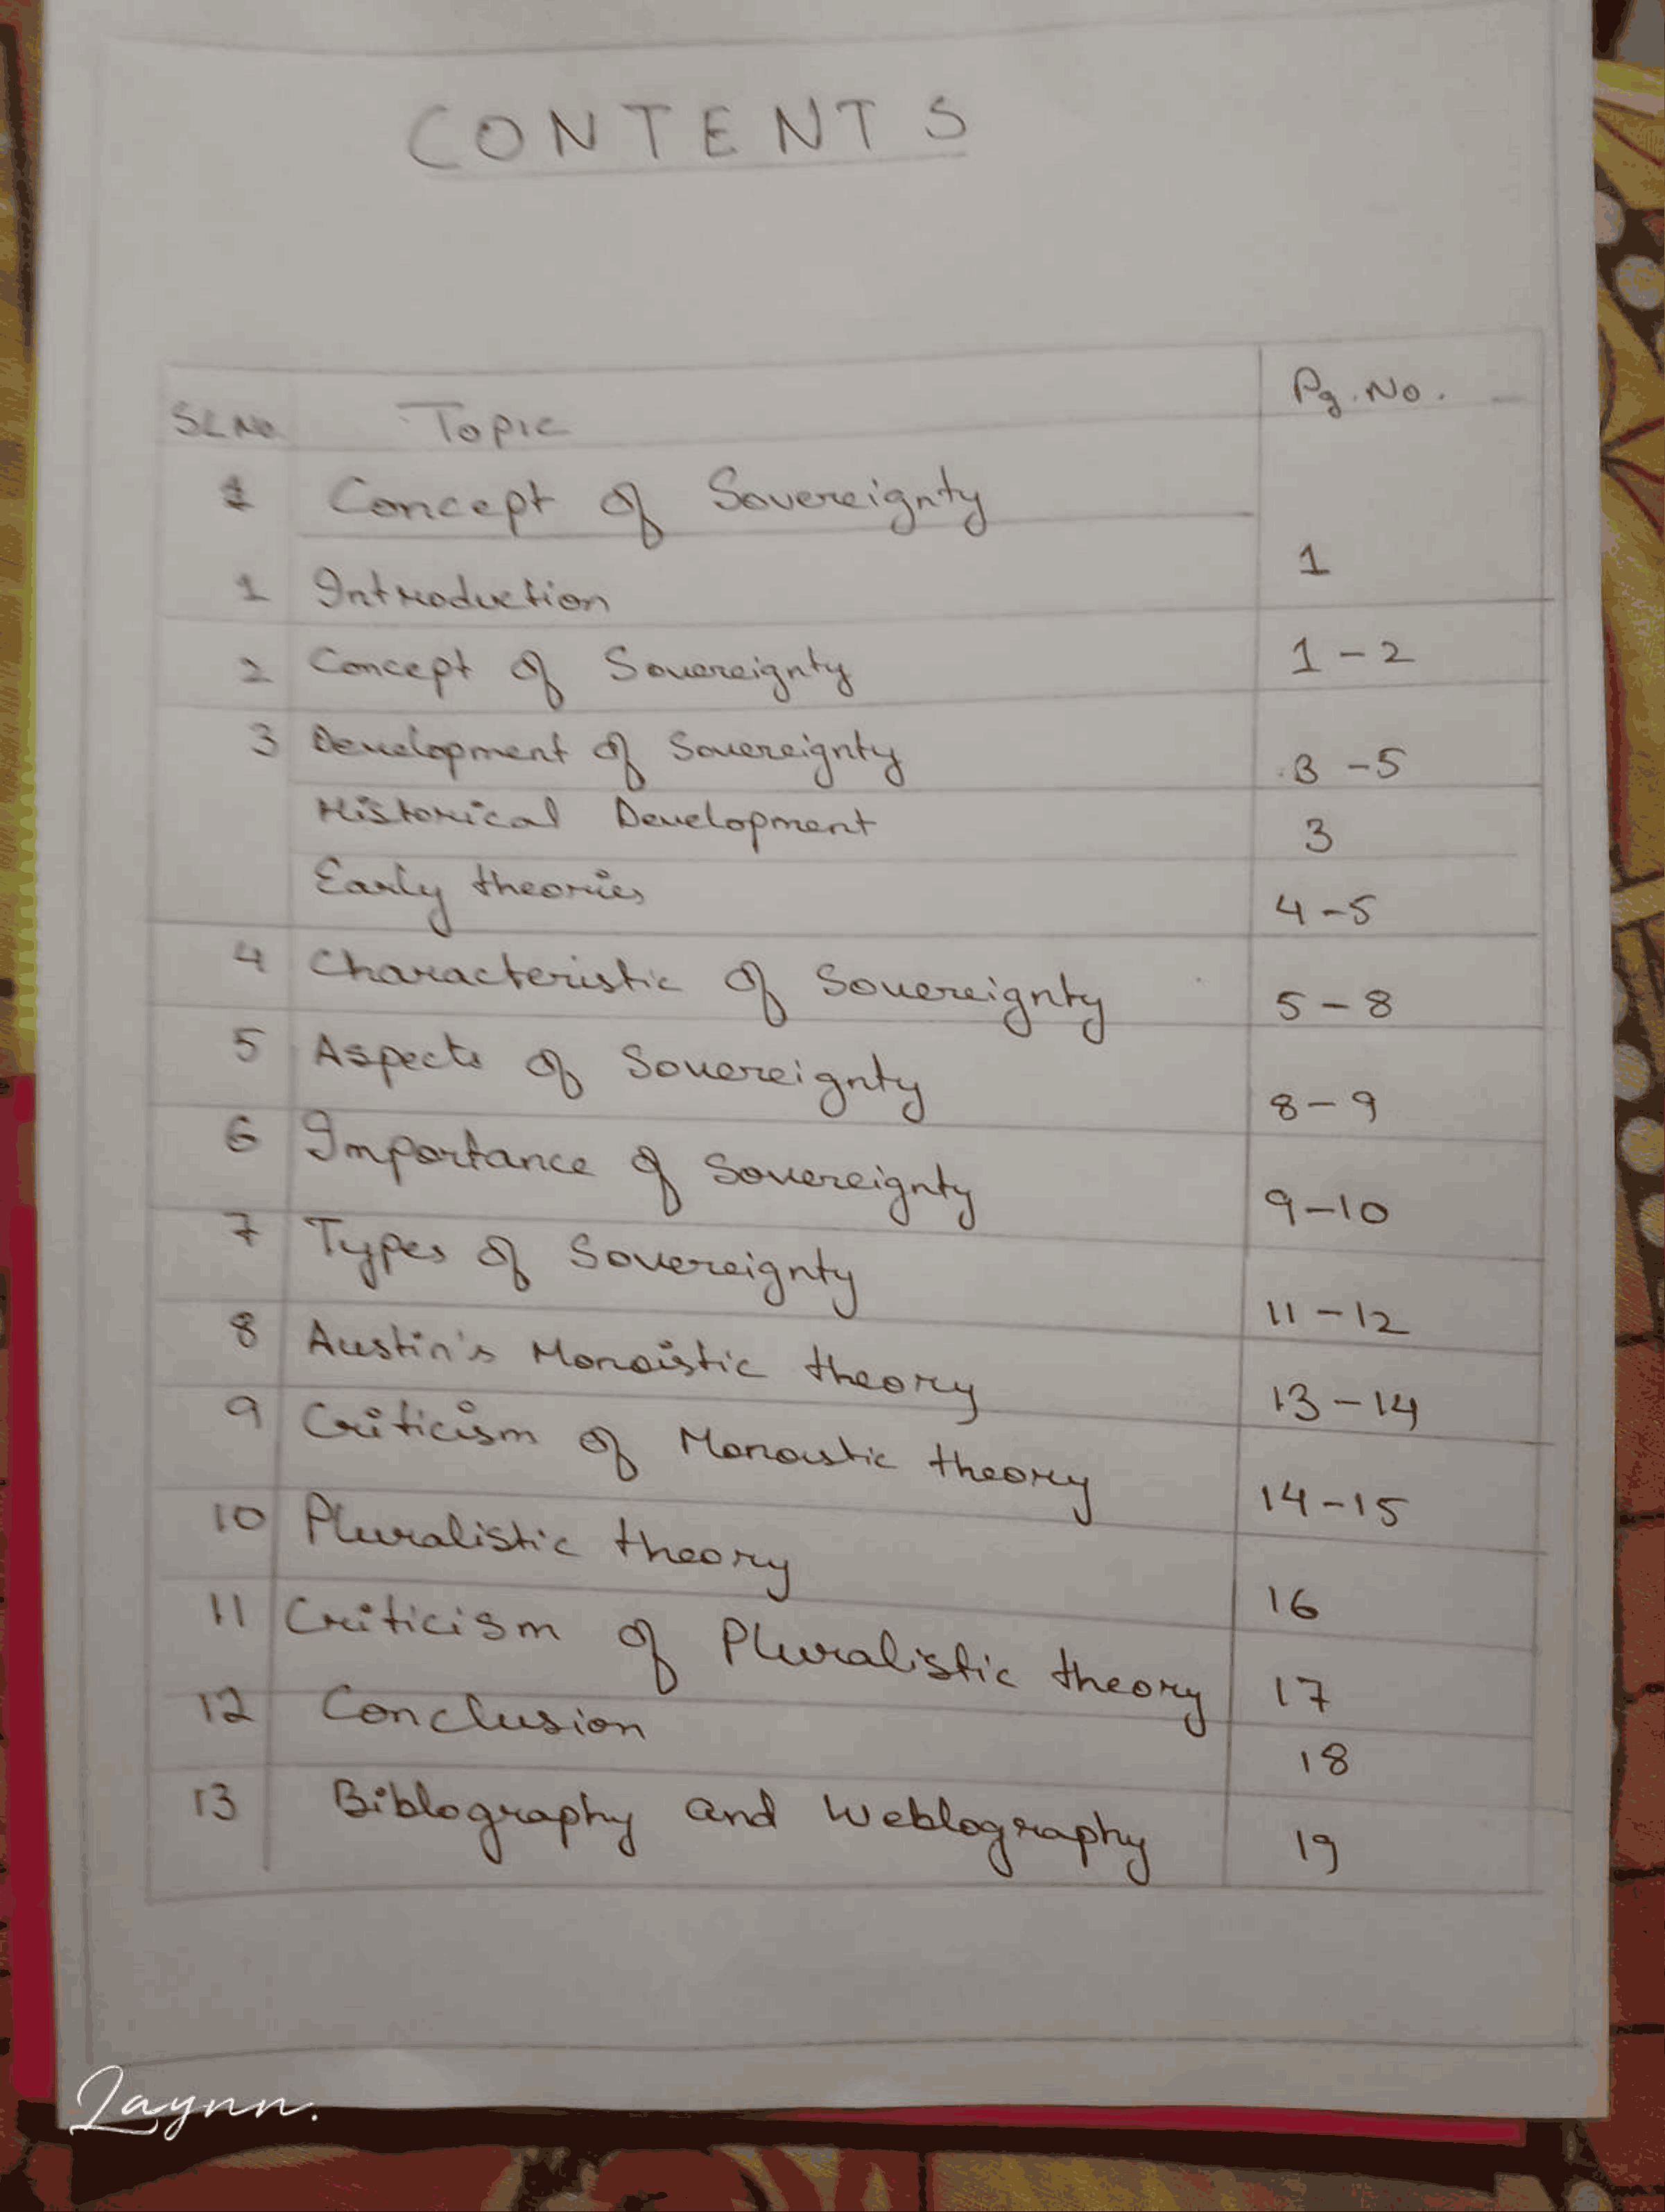 CONTENTS
SL No. Topic Pg. No.
1 Concept of Sovereignty
1 Introduction 1
2 Concept of Sovereignty 1-2
3 Development of Sovereignty 3-5
Historical Development 3
Early theories 4-5
4 Characteristic of Sovereignty 5-8
5 Aspects of Sovereignty 8-9
6 Importance of Sovereignty 9-10
7 Types of Sovereignty 11-12
8 Austin's Monoistic theory 13-14
9 Criticism of Monoistic theory 14-15
10 Pluralistic theory 16
11 Criticism of Pluralistic theory 17
12 Conclusion 18
13 Biblography and Weblography 19
Laynn.